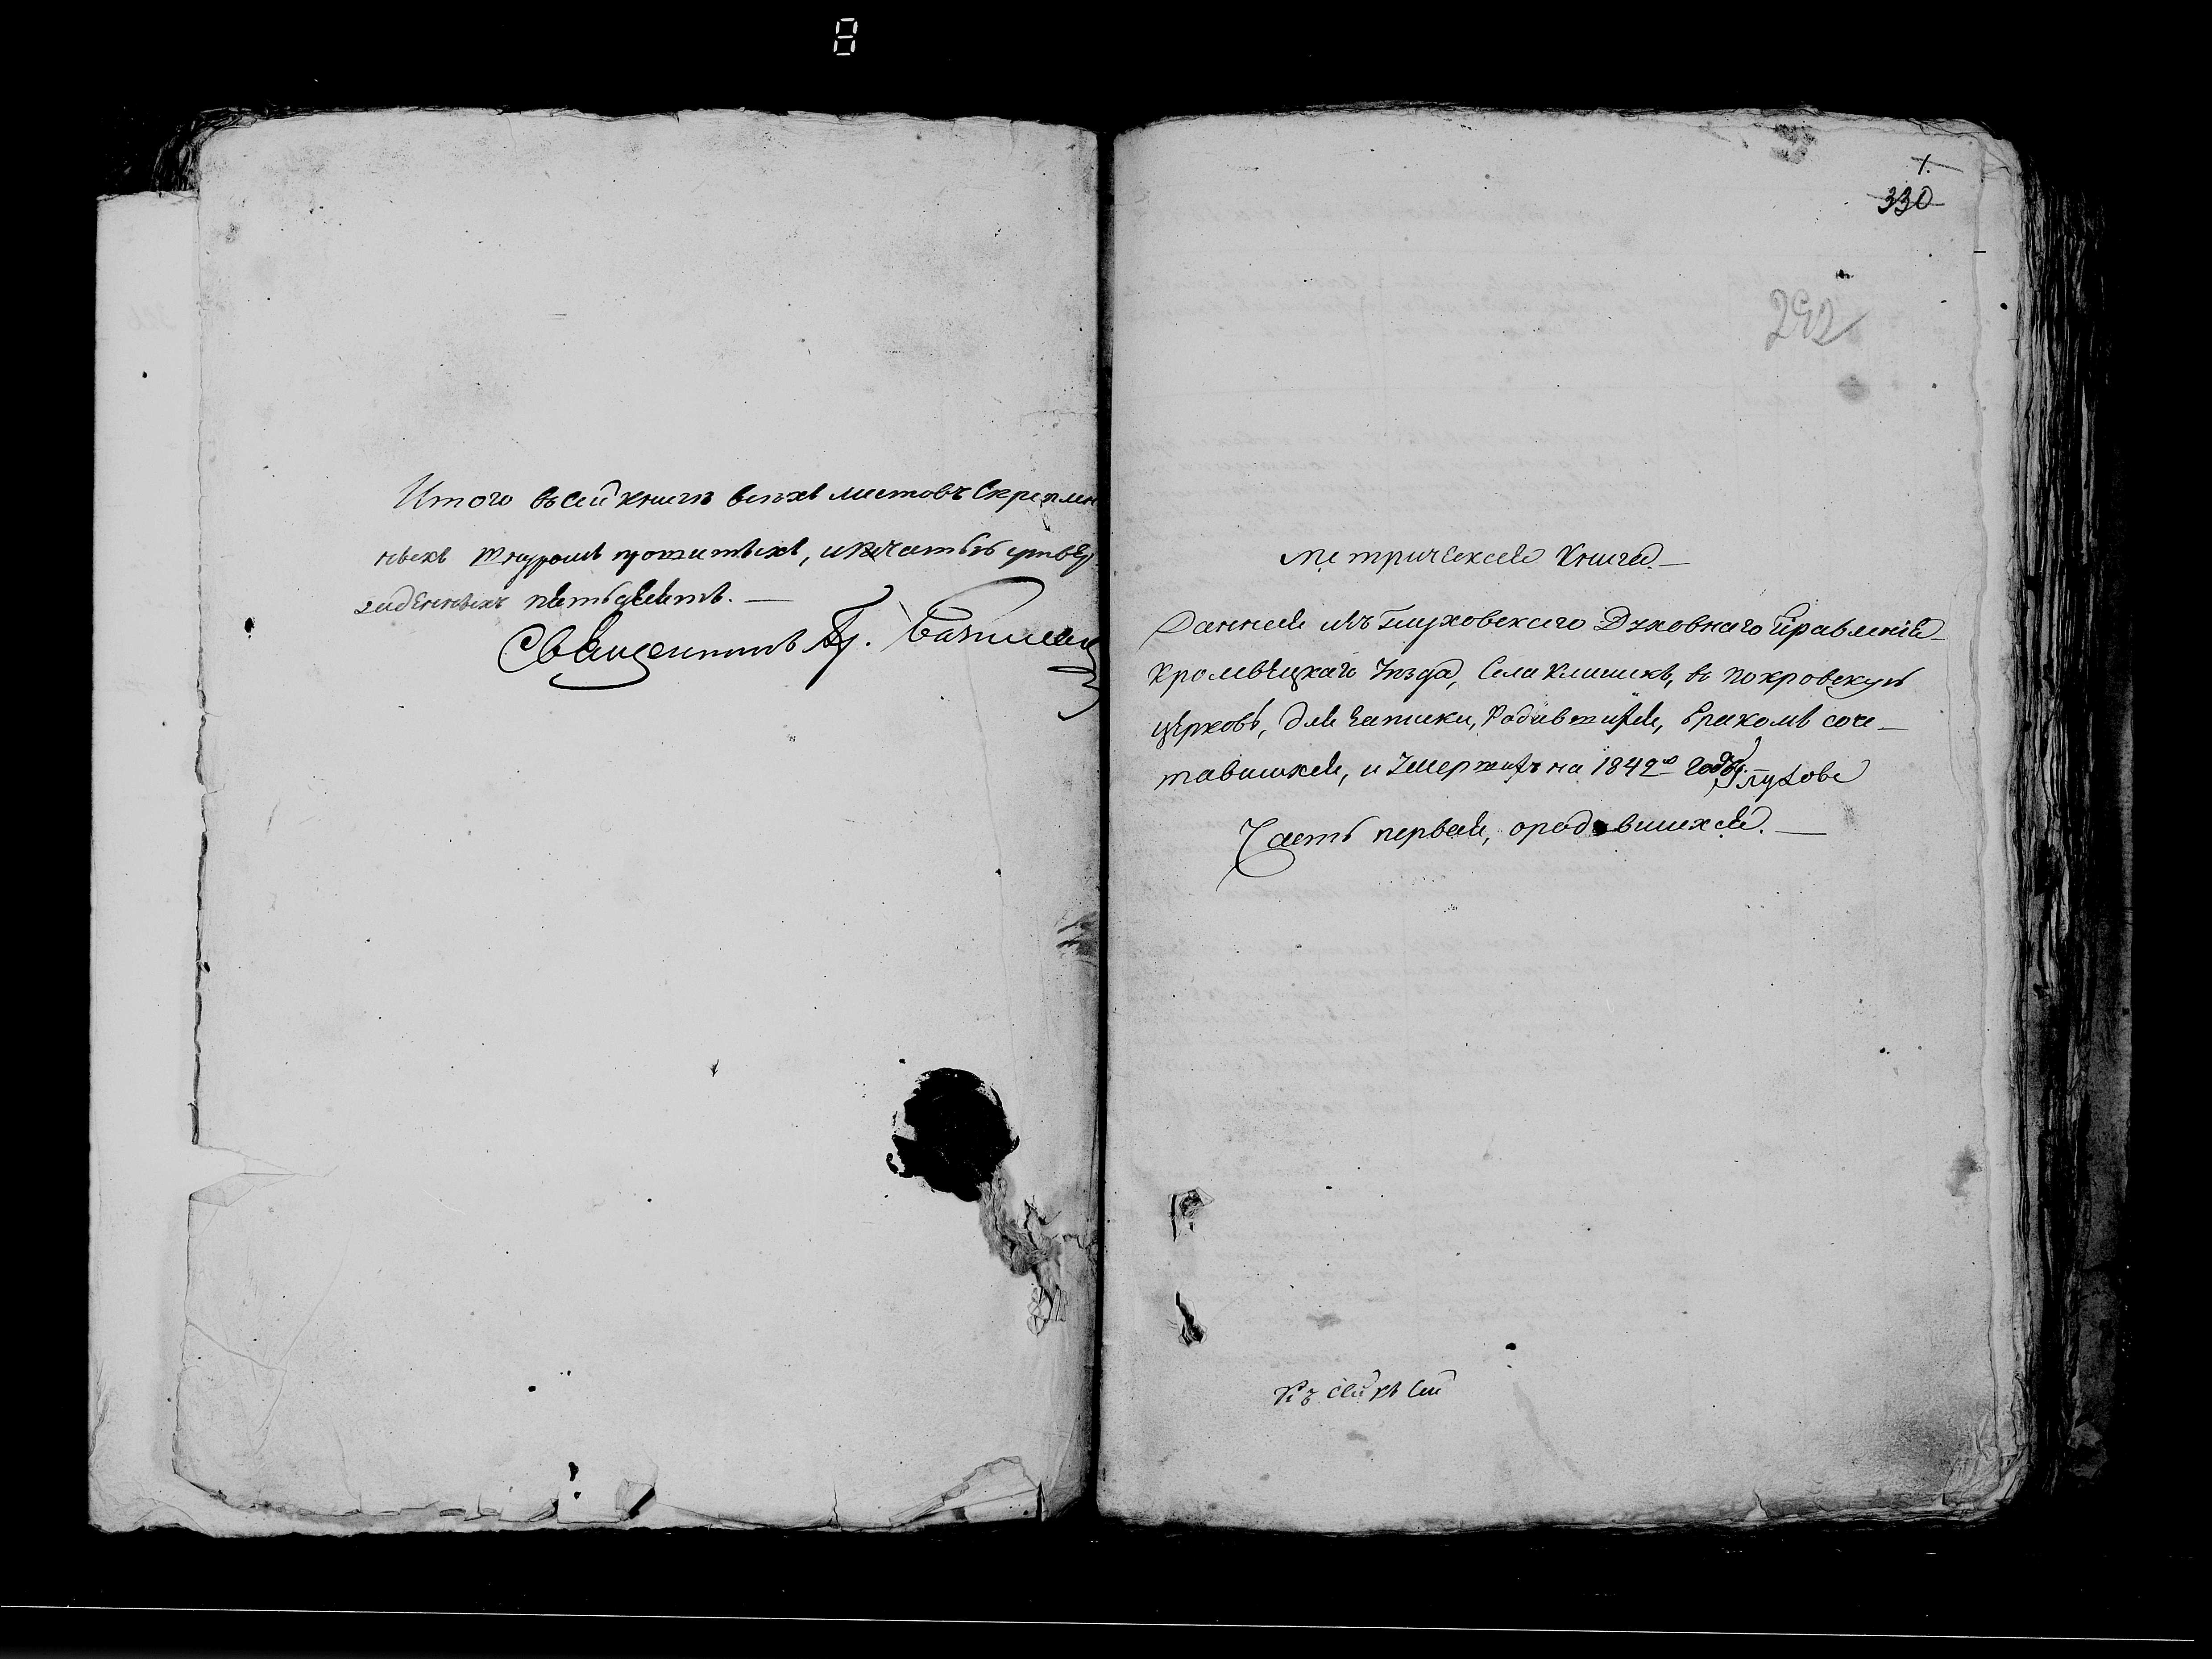 Итого въ сей книгѣ всѣхъ листовъ скреплен
ныхъ шнуромъ прошитыхъ, и печатью утвер
жденныхъ пятдесятъ. —
Священникъ
1.
330
292
Метрическая Книга —
Данная изъ Глуховскаго Духовнаго Правленія
Кролевецкаго Уѣзда, Села Клишкъ, въ Покровскую
церковь, для записки, Родившихся, бракомъ соче—
тавшихся, и умершихъ на 1842й годъ.
Глухове
Часть первая, о родившихся. —
Къ сей къ сей